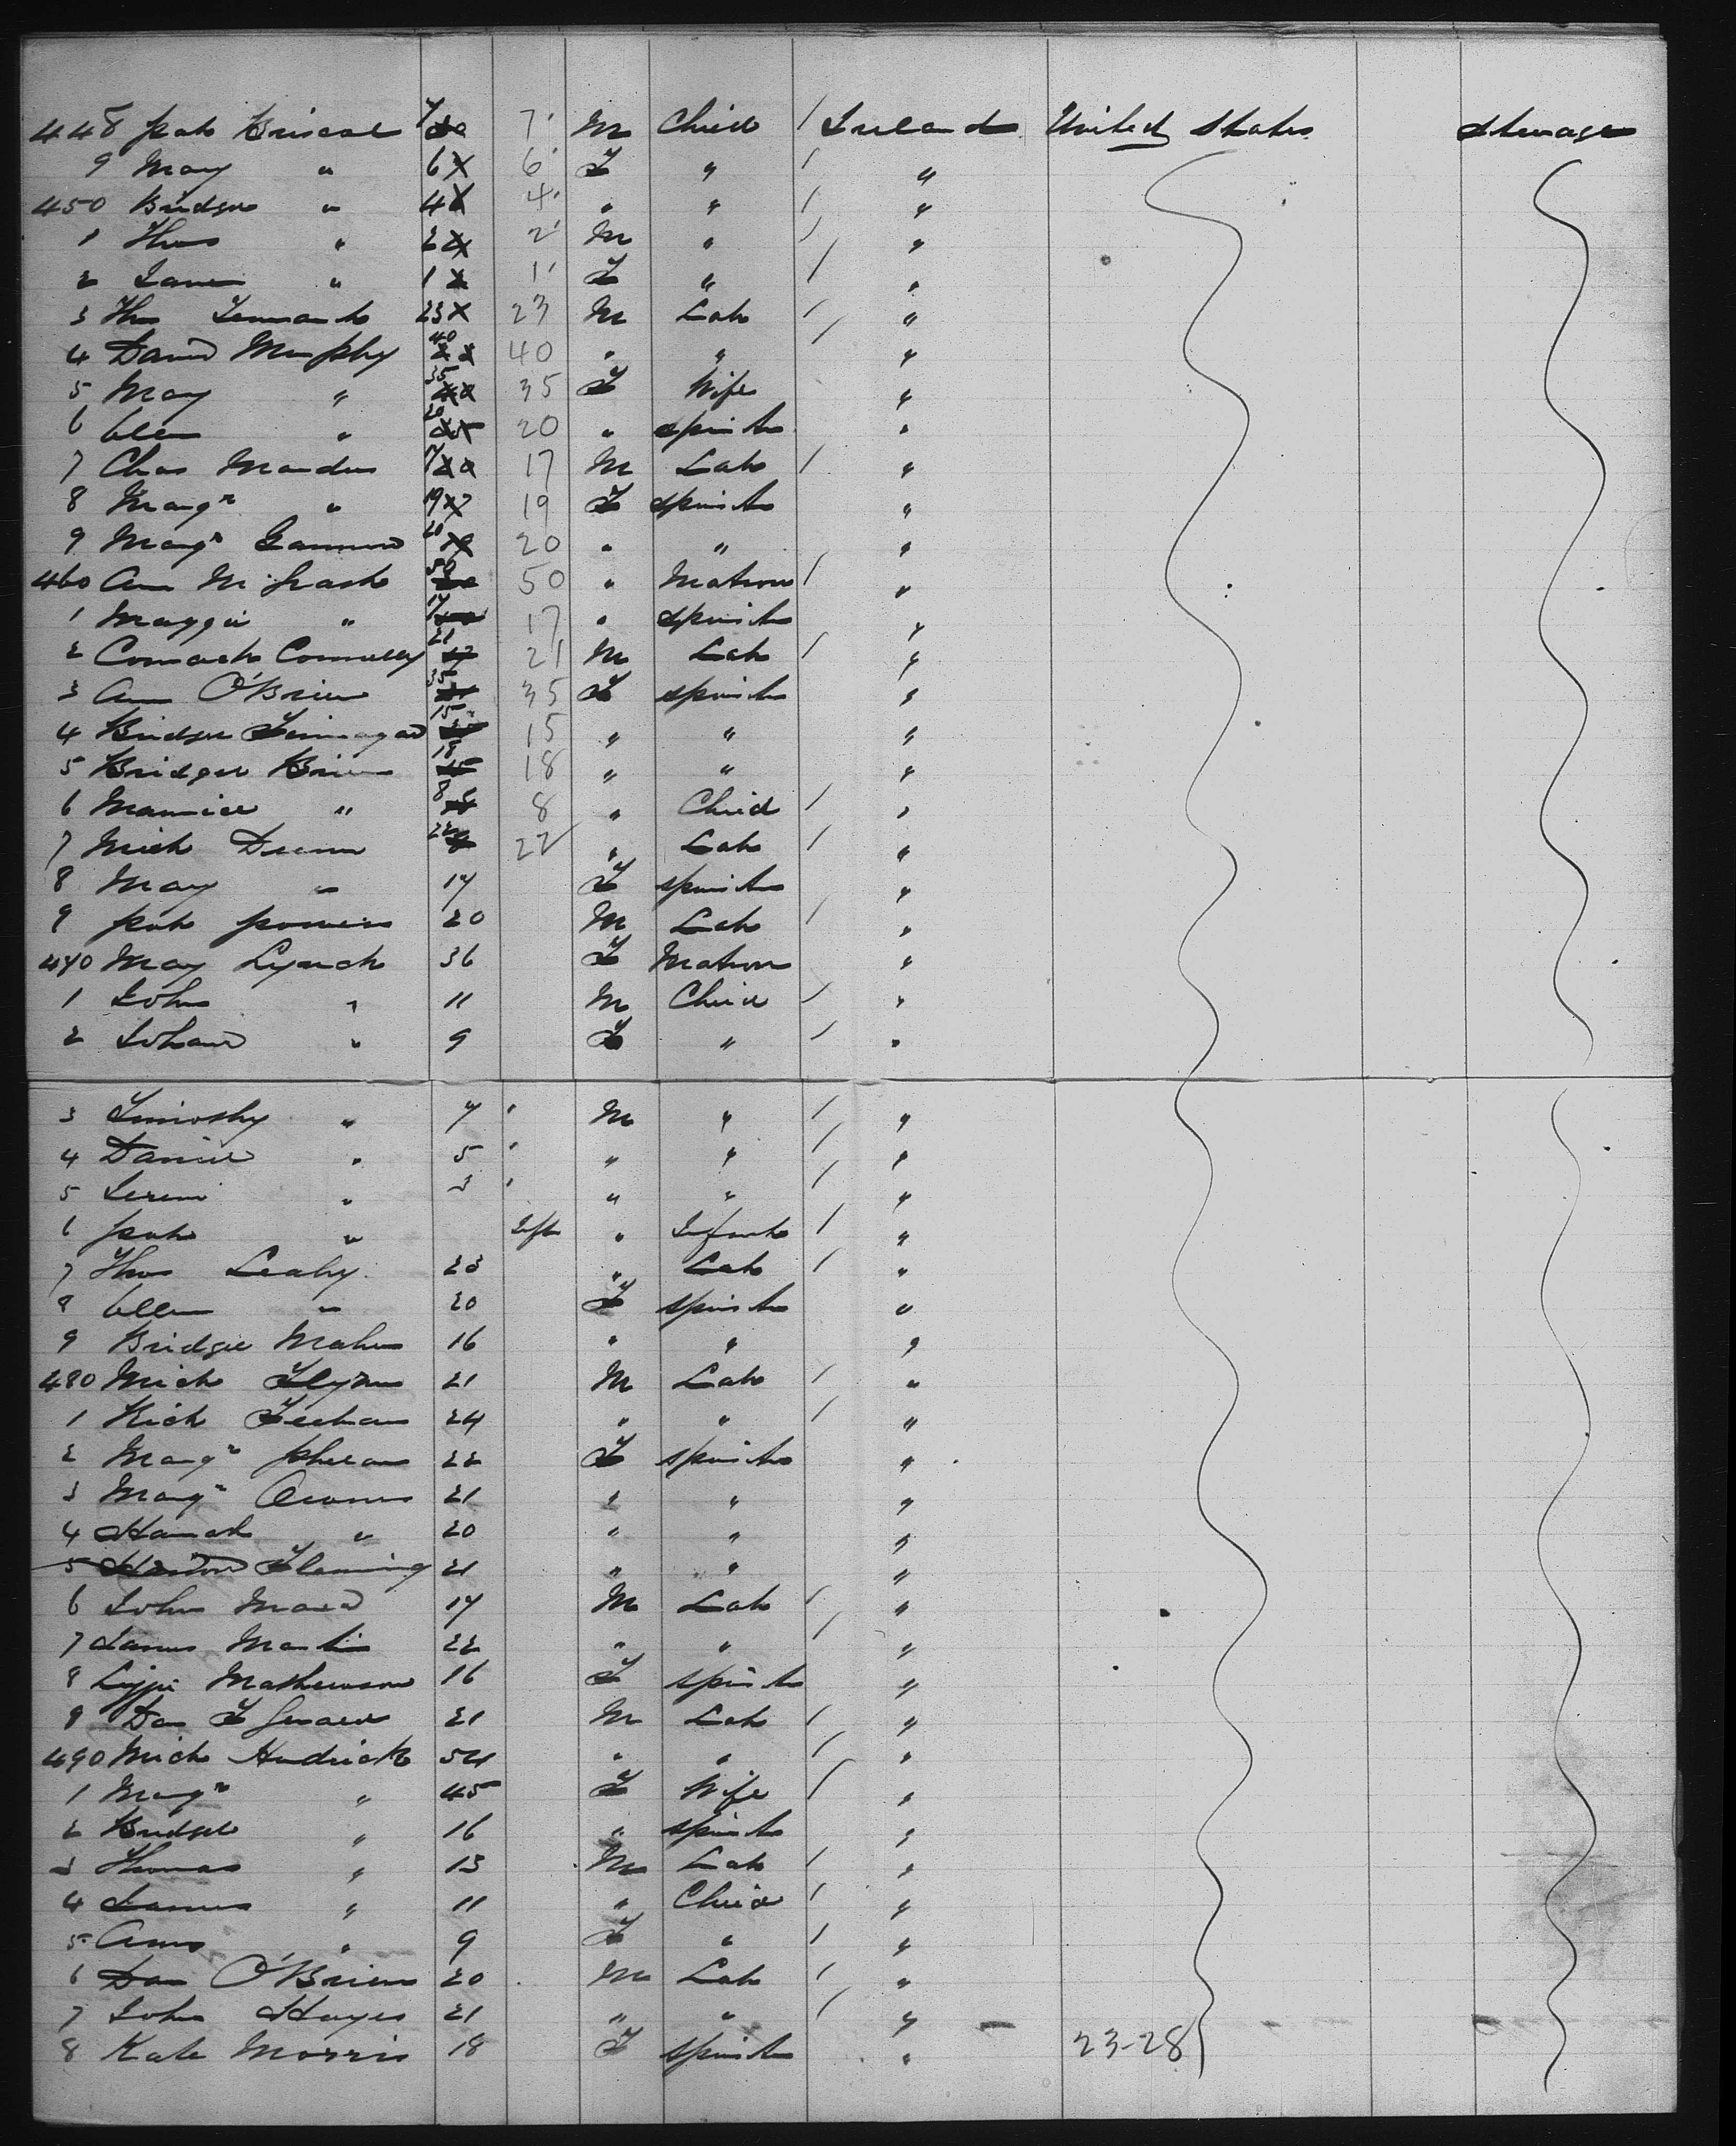 448 Pat Driscol 7 7 M Child / Ireland United States Steerage
9 Mary " 6 6 F " / "
450 Bridget " 4 4 " " / "
1 Thos " 2 2 M " / "
2 Jane " 1 1 F " / "
3 Thos Tennant 23 23 M Lab / "
4 David Murphy 40 40 " " / "
5 Mary " 35 35 F Wife "
6 Ellen " 20 20 " Spinstr "
7 Chas 17 17 M Lab / "
8 Margt " 19 19 F Spinstr "
9 Margt 20 20 " " "
460 Ann McGrath 50 50 " Matron / "
1 Maggie " 17 17 " Spinstr "
2 Cormack Connelly 21 21 M Lab / "
3 Ann O'Brien 35 35 F Spinstr "
4 Bridget Finnegan 15 15 " " "
5 Bridget Brien 18 18 " " "
6 Maurice " 8 8 " Child / "
7 Mich Dunn 22 22 " Lab / "
8 Mary " 17 F Spinstr "
9 Pat Powers 20 M Lab / "
470 Mary Lynch 36 F Matron "
1 John " 11 M Child / "
2 Johana " 9 F " / "
3 Timothy " 7 M " / "
4 Daniel " 5 " " / "
5 Jerem " 3 " " / "
6 Pat " Inft " Infant / "
7 Thos Leahy 23 " Lab / "
8 Ellen " 20 F Spinstr "
9 Bridget Maher 16 " " "
480 Mich Flynn 21 M Lab / "
1 Rich Feehan 24 " " / "
2 Margt Phelan 22 F Spinstr "
3 Margt 21 " " "
4 Hanah " 20 " " "
5 Fleming 21 " " "
6 John Mara 17 M Lab / "
7 James Martin 22 " " / "
8 Lizzie Mathewson 16 F Spinstr "
9 Dan 21 M Lab / "
490 Mich Hendrick 54 " " / "
1 Margt " 45 F Wife / "
2 Bridget " 16 " Spinstr "
3 Thomas " 13 M Lab / "
4 James " 11 " Child / "
5 Ann " 9 F " / "
6 Dan O'Brien 20 M Lab / "
7 John Hayes 21 " " / "
8 Kate Morris 18 F Spinstr " 23-28